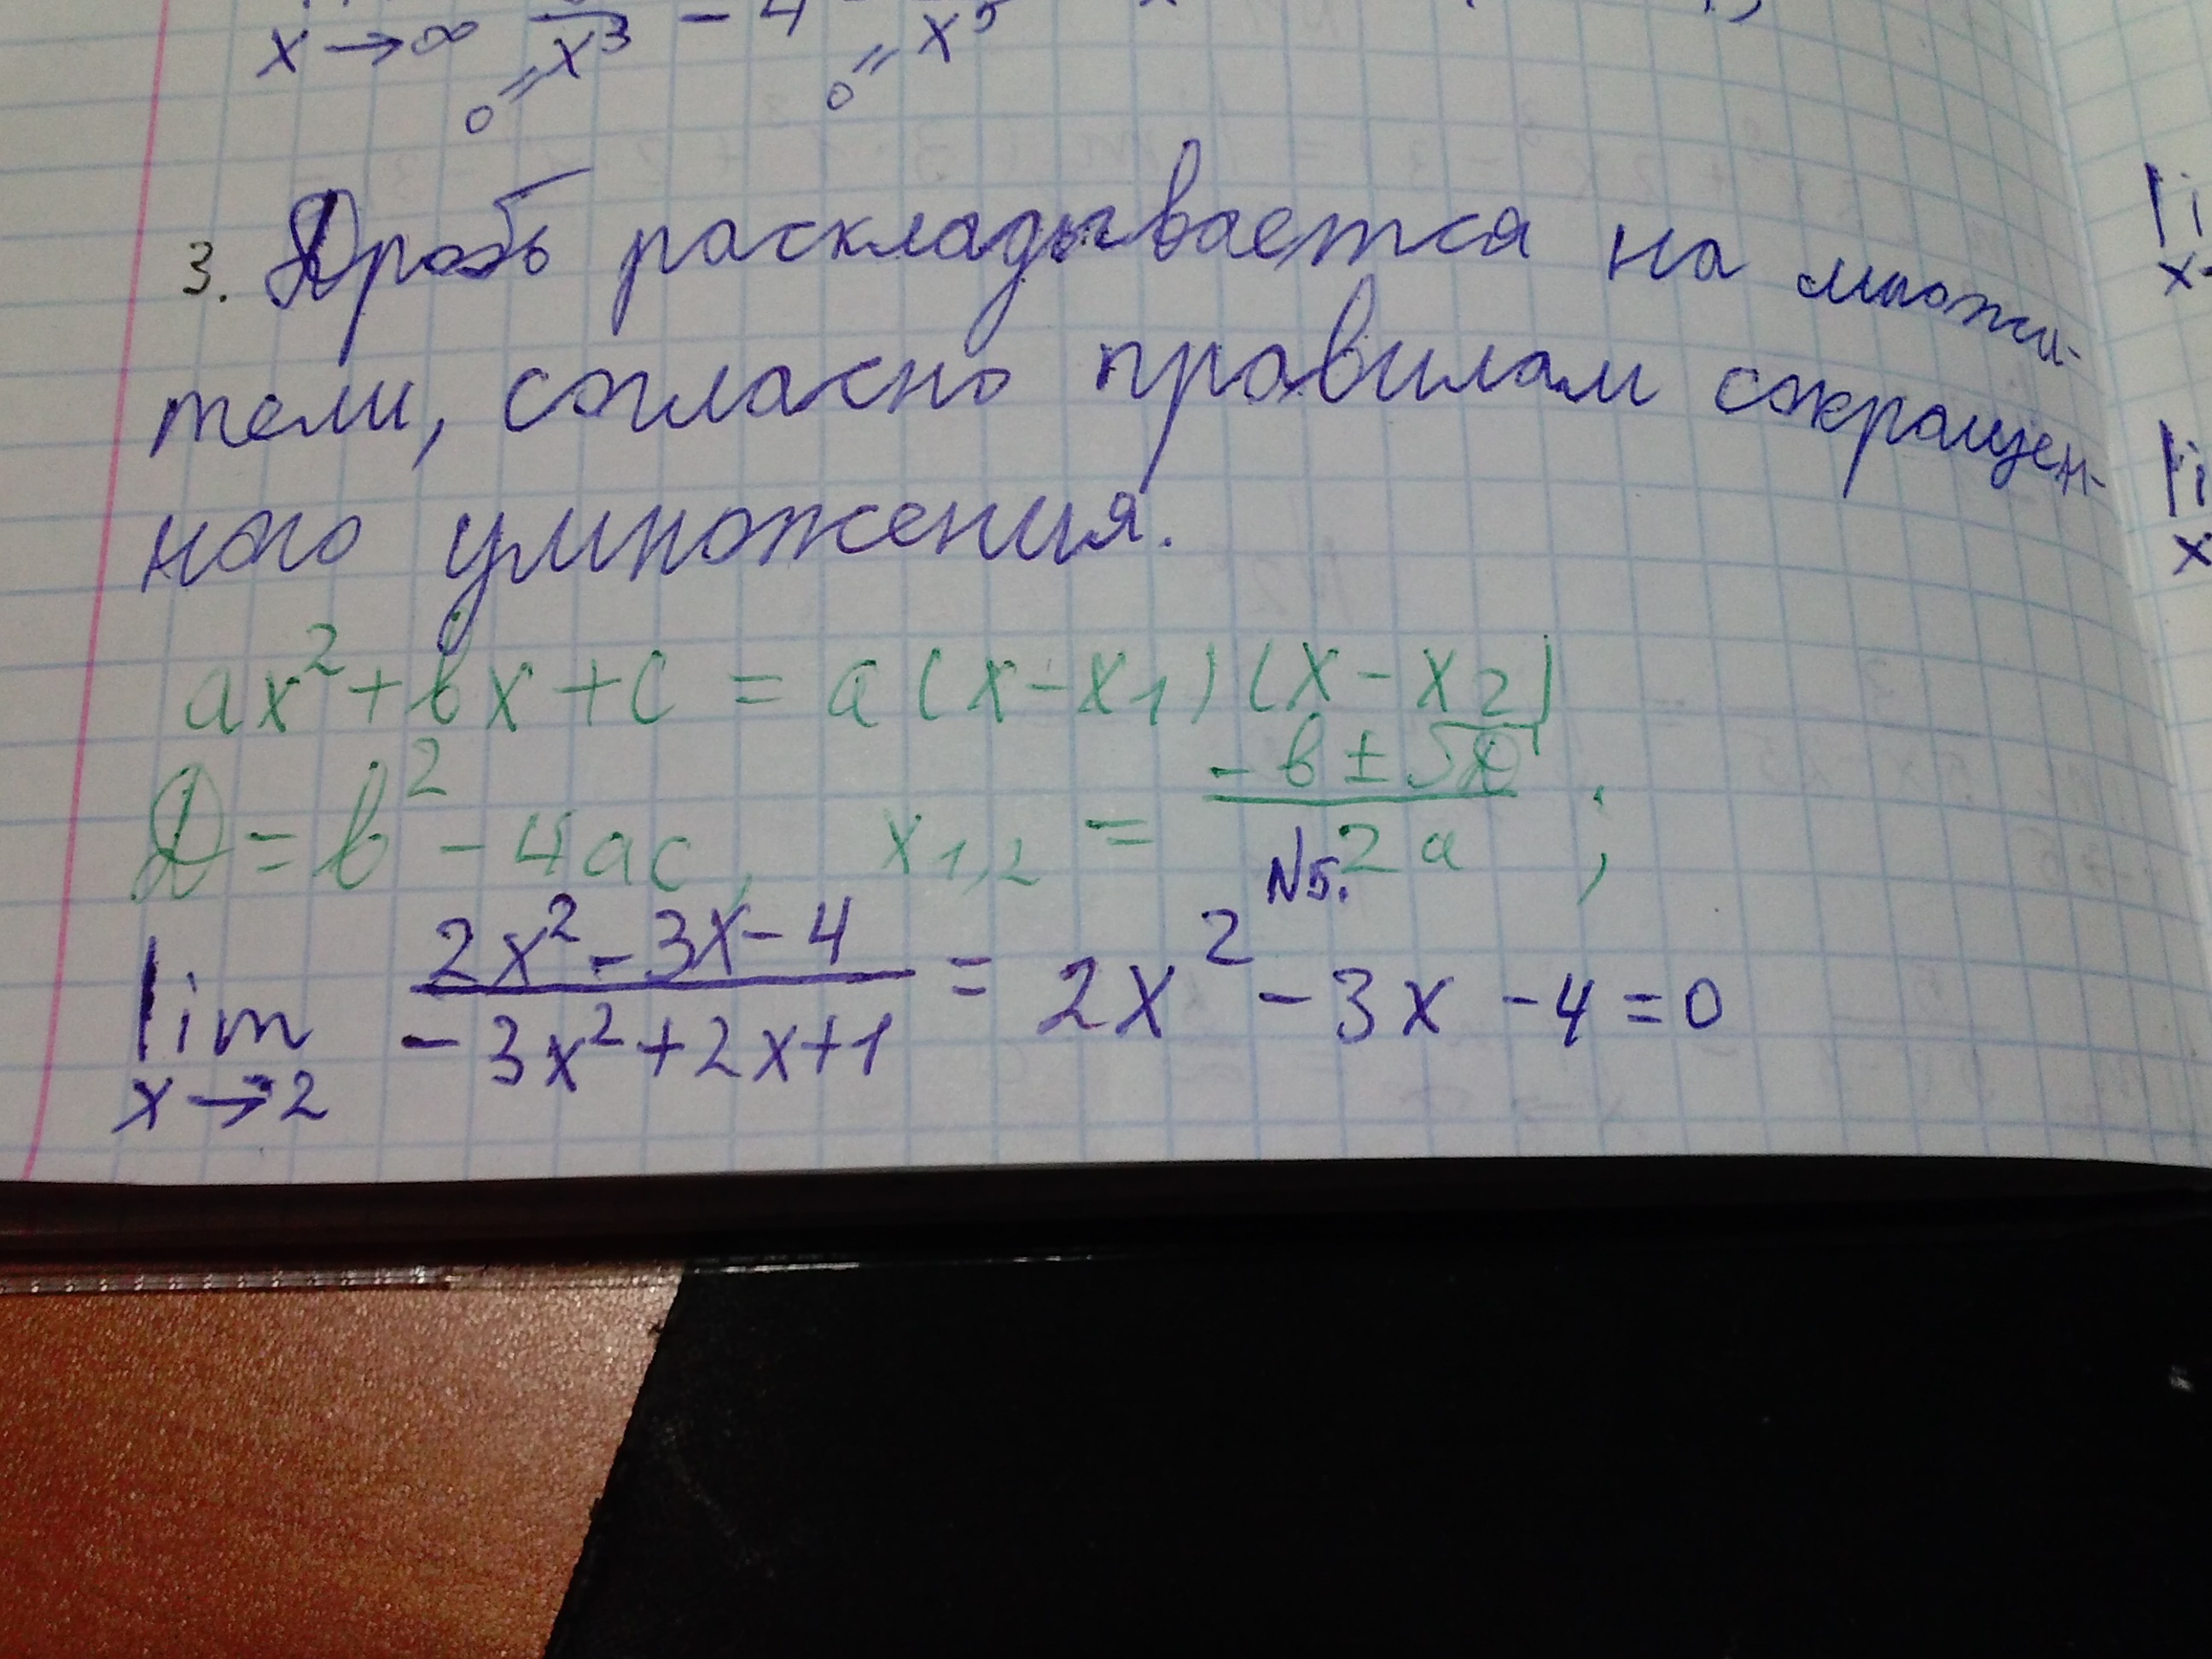 x→∞ x³ - 4 x⁵
0 = 0 =
3. Дробь раскладывается на множи-
тели, согласно правилам сокращен-
ного умножения.
ax² + bx + c = a(x - x₁)(x - x₂)
D = b² - 4ac, x₁,₂ = (-b ± √D) / 2a ;
N5.
lim x→2 (2x² - 3x - 4) / (-3x² + 2x + 1) = 2x² - 3x - 4 = 0
li
x
li
x